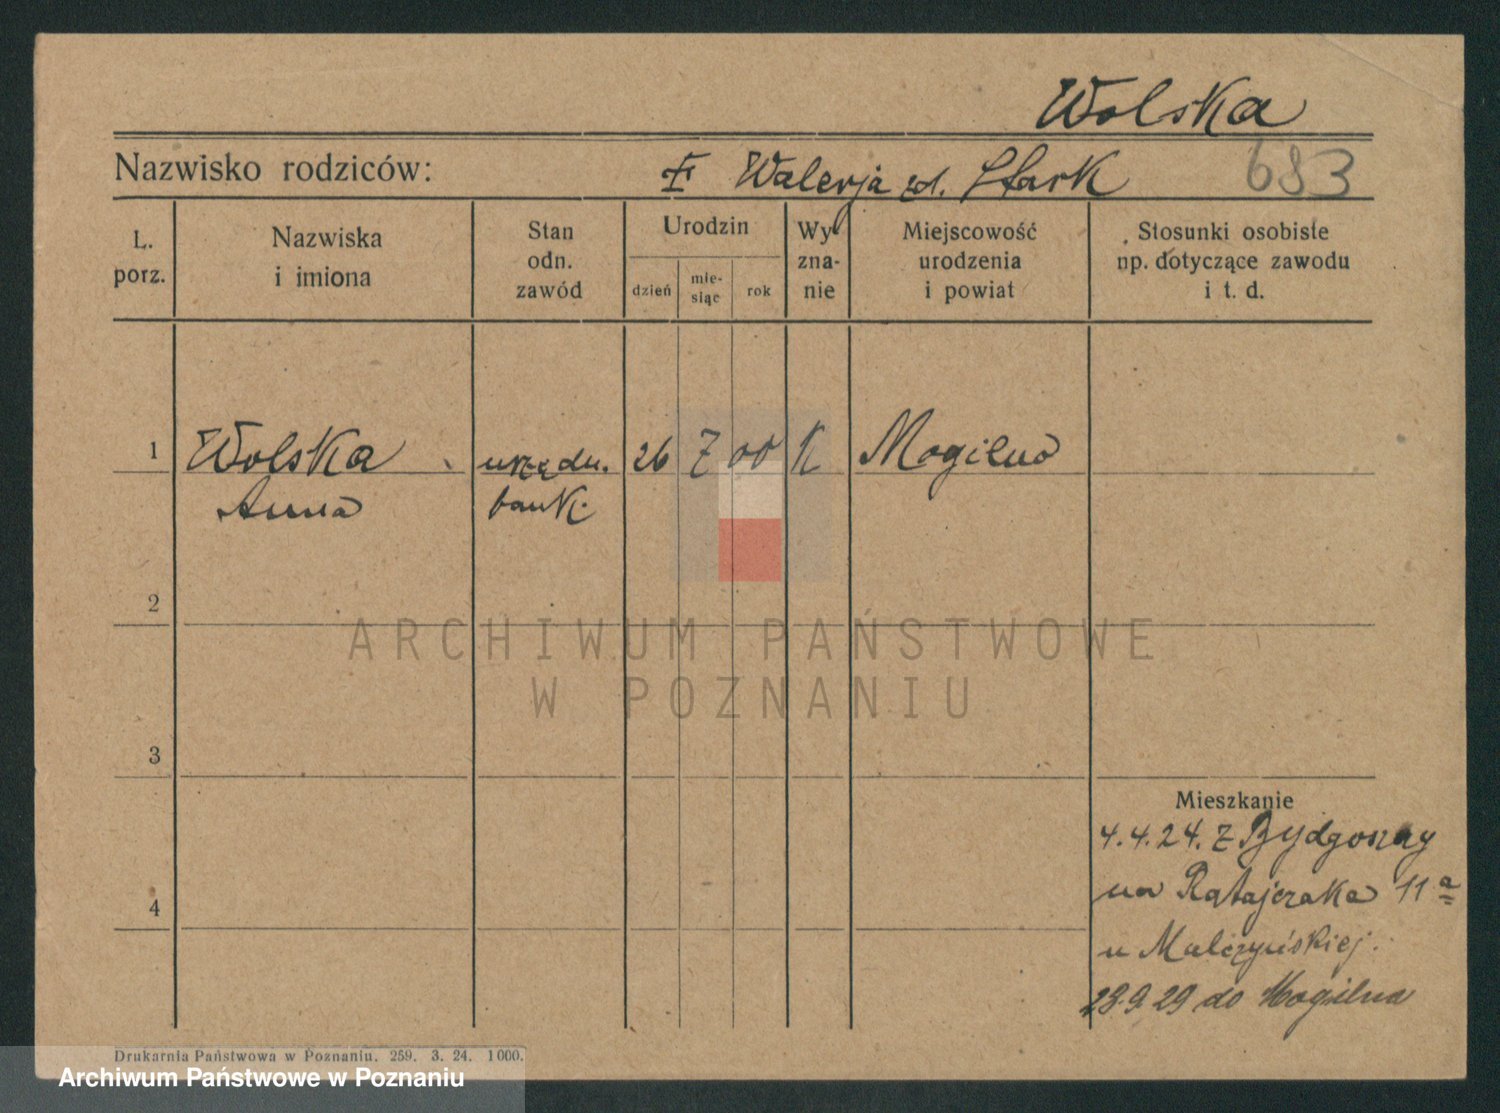 Wolska
Nazwisko rodziców: F Walerja zd. Stark 683
L. porz.
Nazwiska i imiona
Stan odn. zawód
Urodzin
dzień
mie-
siąc
rok
Wy-
zna-
nie
Miejscowość urodzenia i powiat
Stosunki osobiste np. dotyczące zawodu i t. d.
1 Wolska urzędn. 26 7 00 K Mogilno
Anna bank.
2
ARCHIWUM PAŃSTWOWE
W POZNANIU
3
Mieszkanie
4.4.24. z Bydgoszczy
na Ratajczaka 11a
4
u Malczyńskiej.
28.9.29 do Mogilna
Drukarnia Państwowa w Poznaniu. 259. 3. 24. 1000.
Archiwum Państwowe w Poznaniu